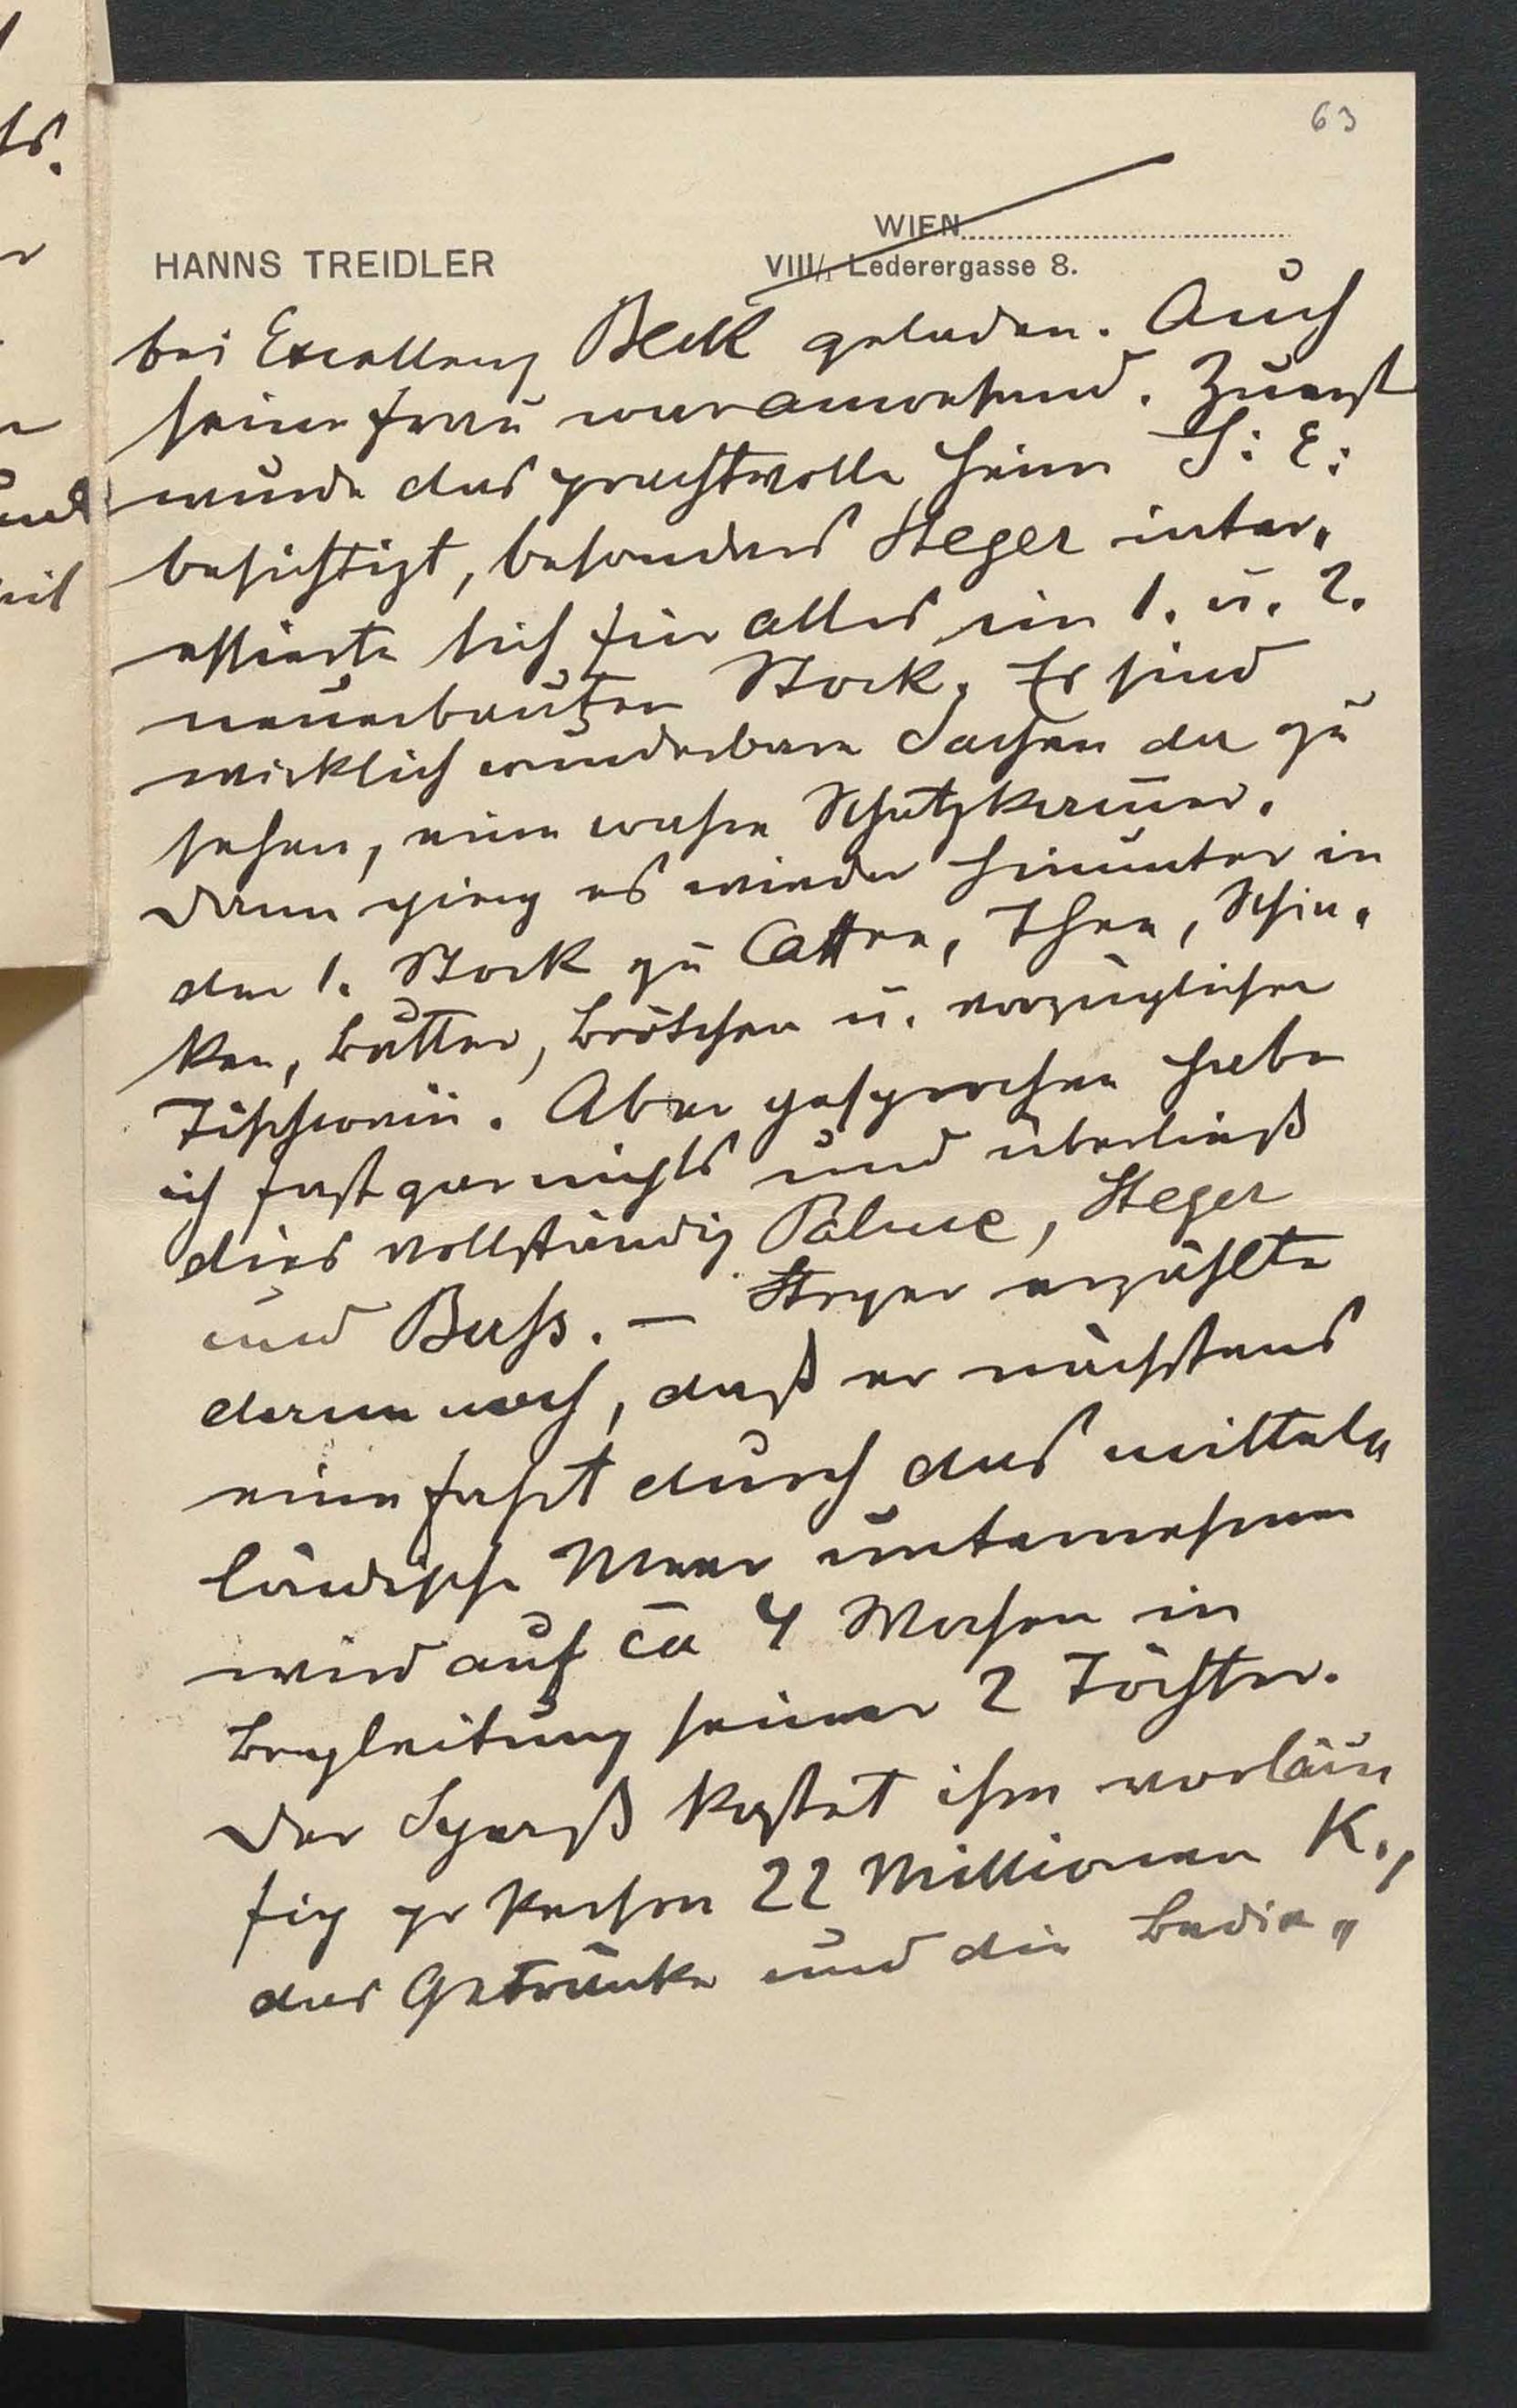 63
WIEN
HANNS TREIDLER
VIII/1 Lederergasse 8.
bei Excellenz Beck geladen. Auch
seine Frau war anwesend. Zuerst
wurde das prachtvolle Heim S: E:
besichtigt, besonders Steger inter„
essierte sich für alles im 1. u. 2.
neuerbauten Stock. Es sind
wirklich wunderbare Sachen da zu
sehen, eine wahre Schatzkammer.
Dann ging es wieder hinunter in
den 1. Stock zu Caffee, Thee, Schin„
ken, Butter, Brötchen u. vorzüglichen
Tischwein. Aber gesprochen habe
ich fast gar nichts und überließ
dies vollständig Palme, Steger
und Buss. – Steger erzählte
dann noch, daß er nächstens
eine Fahrt durch das mittel„
ländische Meer unternehmen
wird auf ca 4 Wochen in
Begleitung seiner 2 Töchter.
Der Spass kostet ihm vorläu
fig pr Person 22 Millionen K.,
das Getränke und die Bedie„